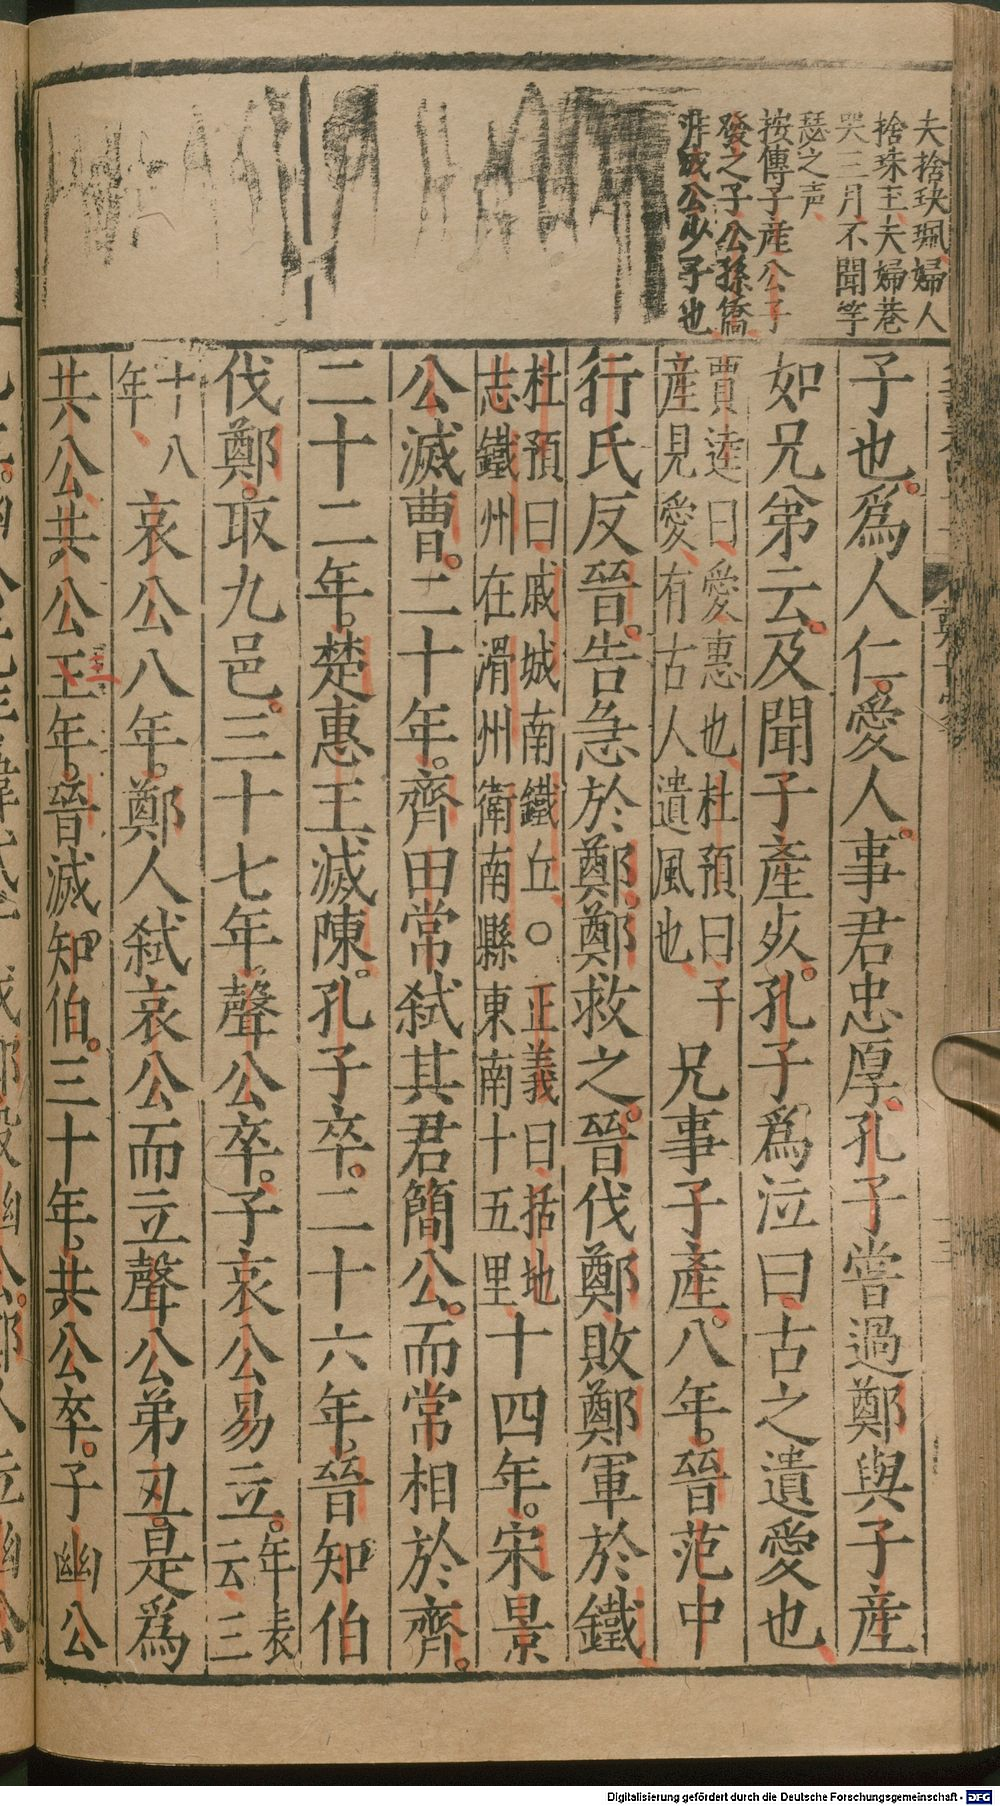 夫捨玦珮婦人
捨珠玉夫婦巷
哭三月不聞竽
瑟之声
按傳子産公子
發之子公孫僑
非成公少子也
子也。爲人仁。愛人。事君忠厚。孔子嘗過鄭與子産
如兄弟云。及聞子產死。孔子爲泣曰。古之遺愛也
賈逵曰愛惠也杜預曰子
産見愛有古人遺風也
兄事子產。八年。晉范中
行氏反晉。告急於鄭。鄭救之。晉伐鄭敗鄭軍於鐵
杜預曰戚城南鐵丘○正義曰括地
志鐵州在滑州衛南縣東南十五里
十四年。宋景
公滅曹。二十年。齊田常弑其君簡公。而常相於齊。
二十二年。楚惠王滅陳。孔子卒。二十六年。晉知伯
伐鄭。取九邑。三十七年。聲公卒。子哀公易立。
年表
云三
十八
年
哀公八年。鄭人弑哀公而立聲公弟丑。是爲
共公。共公三年。晉滅知伯。三十年。共公卒。子幽公
Digitalisierung gefördert durch die Deutsche Forschungsgemeinschaft - DFG